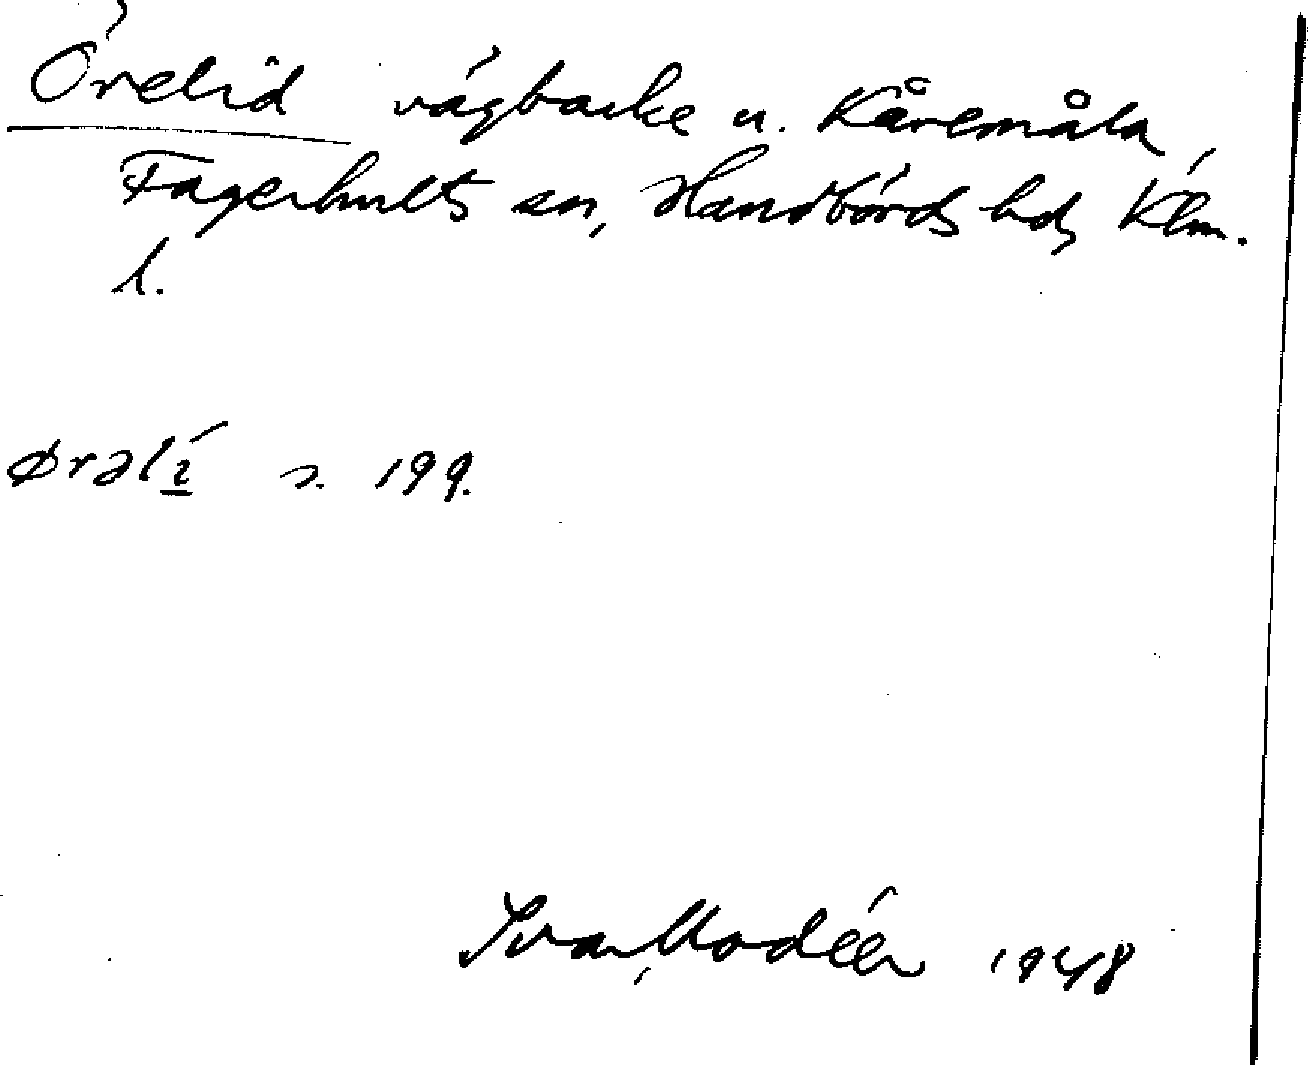 Örelid vägbacke u. Kåremåla,
Fagerhults sn, Handbörds hd, Klm.
l.
øralí s. 199.
Ivar Modéer 1948